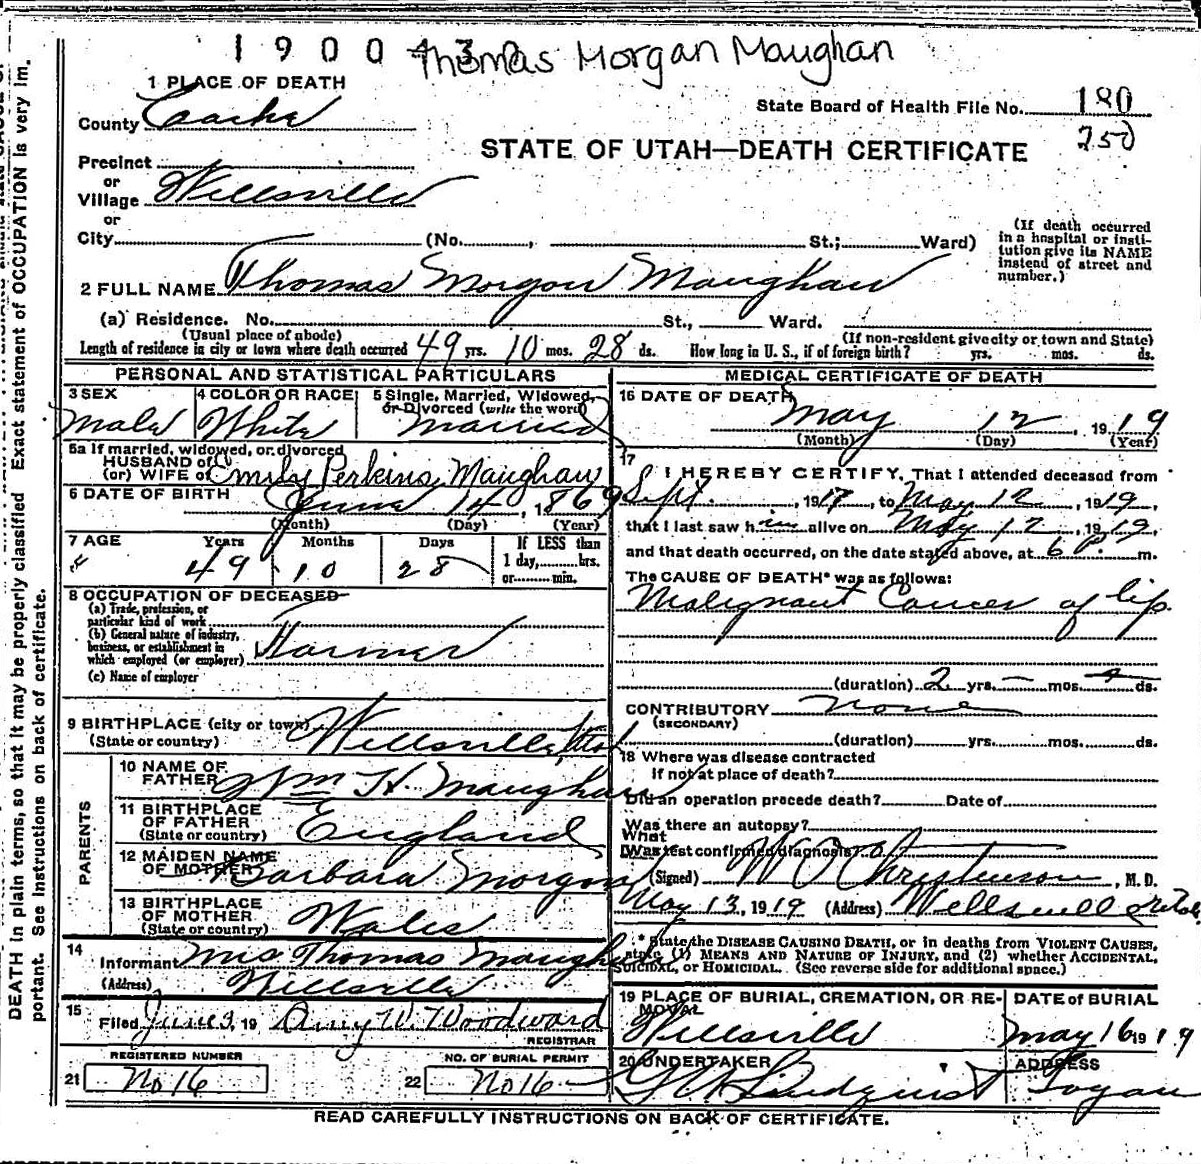 1 9 0 0 4 3 0 Thomas Morgan Maughan
1 PLACE OF DEATH
State Board of Health File No. 180
County Cache
250
STATE OF UTAH—DEATH CERTIFICATE
Precinct
or
Village Wellsville
or
City (No. , St.; Ward)
(If death occurred
in a hospital or insti-
tution give its NAME
instead of street and
number.)
2 FULL NAME Thomas Morgan Maughan
(a) Residence. No. St., Ward.
(Usual place of abode) (If non-resident give city or town and State)
Length of residence in city or town where death occurred 49 yrs. 10 mos. 28 ds. How long in U. S., if of foreign birth? yrs. mos. ds.
PERSONAL AND STATISTICAL PARTICULARS
3 SEX
Male
4 COLOR OR RACE
White
5 Single, Married, Widowed,
or Divorced (write the word)
Married
5a If married, widowed, or divorced
HUSBAND of
(or) WIFE of Emily Perkins Maughan
6 DATE OF BIRTH June 14, 1869
(Month) (Day) (Year)
7 AGE Years Months Days If LESS than
1 day, hrs.
or min.
49 10 28
8 OCCUPATION OF DECEASED
(a) Trade, profession, or
particular kind of work
(b) General nature of industry,
business, or establishment in
which employed (or employer) Farmer
(c) Name of employer
9 BIRTHPLACE (city or town) Wellsville, Utah
(State or country)
PARENTS
10 NAME OF
FATHER Wm H. Maughan
11 BIRTHPLACE
OF FATHER England
(State or country)
12 MAIDEN NAME
OF MOTHER Barbara Morgan
13 BIRTHPLACE
OF MOTHER Wales
(State or country)
14
Informant Mrs Thomas Maughan
(Address) Wellsville
15
Filed June 3, 19 Amy W. Woodward
REGISTRAR
REGISTERED NUMBER
21 No 16
NO. OF BURIAL PERMIT
22 No 16
MEDICAL CERTIFICATE OF DEATH
16 DATE OF DEATH May 12, 1919
(Month) (Day) (Year)
17
I HEREBY CERTIFY, That I attended deceased from
Sept. , 1917, to May 12, 1919,
that I last saw him alive on May 12, 1919,
and that death occurred, on the date stated above, at 6 P. m.
The CAUSE OF DEATH* was as follows:
Malignant Cancer of lip.
(duration) 2 yrs. — mos. ds.
CONTRIBUTORY None
(SECONDARY)
(duration) yrs. mos. ds.
18 Where was disease contracted
if not at place of death?
Did an operation precede death? Date of
Was there an autopsy?
What
Was test confirmed diagnosis?
(Signed) W O Christenson, M. D.
May 13, 1919 (Address) Wellsvill Utah
* State the DISEASE CAUSING DEATH, or in deaths from VIOLENT CAUSES,
state (1) MEANS AND NATURE OF INJURY, and (2) whether ACCIDENTAL,
SUICIDAL, or HOMICIDAL. (See reverse side for additional space.)
19 PLACE OF BURIAL, CREMATION, OR RE-
MOVAL
Wellsville
DATE of BURIAL
May 16 1919
20 UNDERTAKER
Lindquist
ADDRESS
Logan
READ CAREFULLY INSTRUCTIONS ON BACK OF CERTIFICATE.
DEATH in plain terms, so that it may be properly classified Exact statement of OCCUPATION is very im.
portant. See instructions on back of certificate.